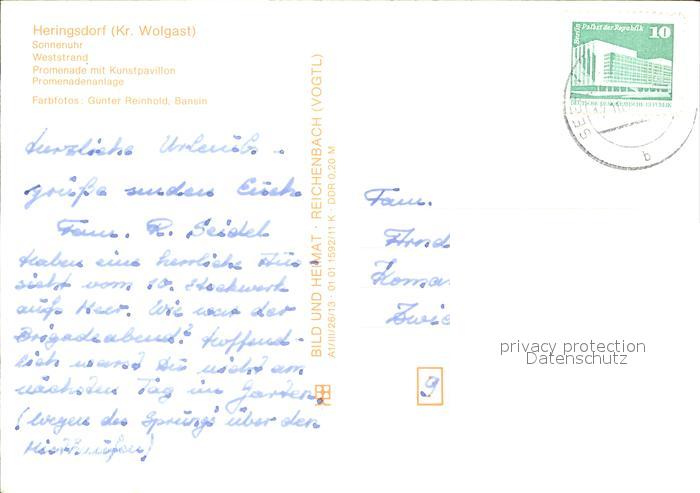 Heringsdorf (Kr. Wolgast)
Sonnenuhr
Weststrand
Promenade mit Kunstpavillon
Promenadenanlage
Farbfotos: Günter Reinhold, Bansin
Herzliche Urlaubs-
grüße senden Euch
Fam. R. Seidel
Haben eine herrliche Aus-
sicht vom 10. Stockwerk
aufs Meer. Wie war der
Brigadeabend? Hoffend-
lich warst Du nicht am
nächsten Tag im Garten
(wegen des Sprungs über den
BILD UND HEIMAT · REICHENBACH (VOGTL)
A1/III/26/13 · 01 01 1592/11 K · DDR 0,20 M
Berlin Palast der Republik
10
DEUTSCHE DEMOKRATISCHE REPUBLIK
SEEB
b
Fam.
Arnd
Koma
Zwic
9
privacy protection
Datenschutz